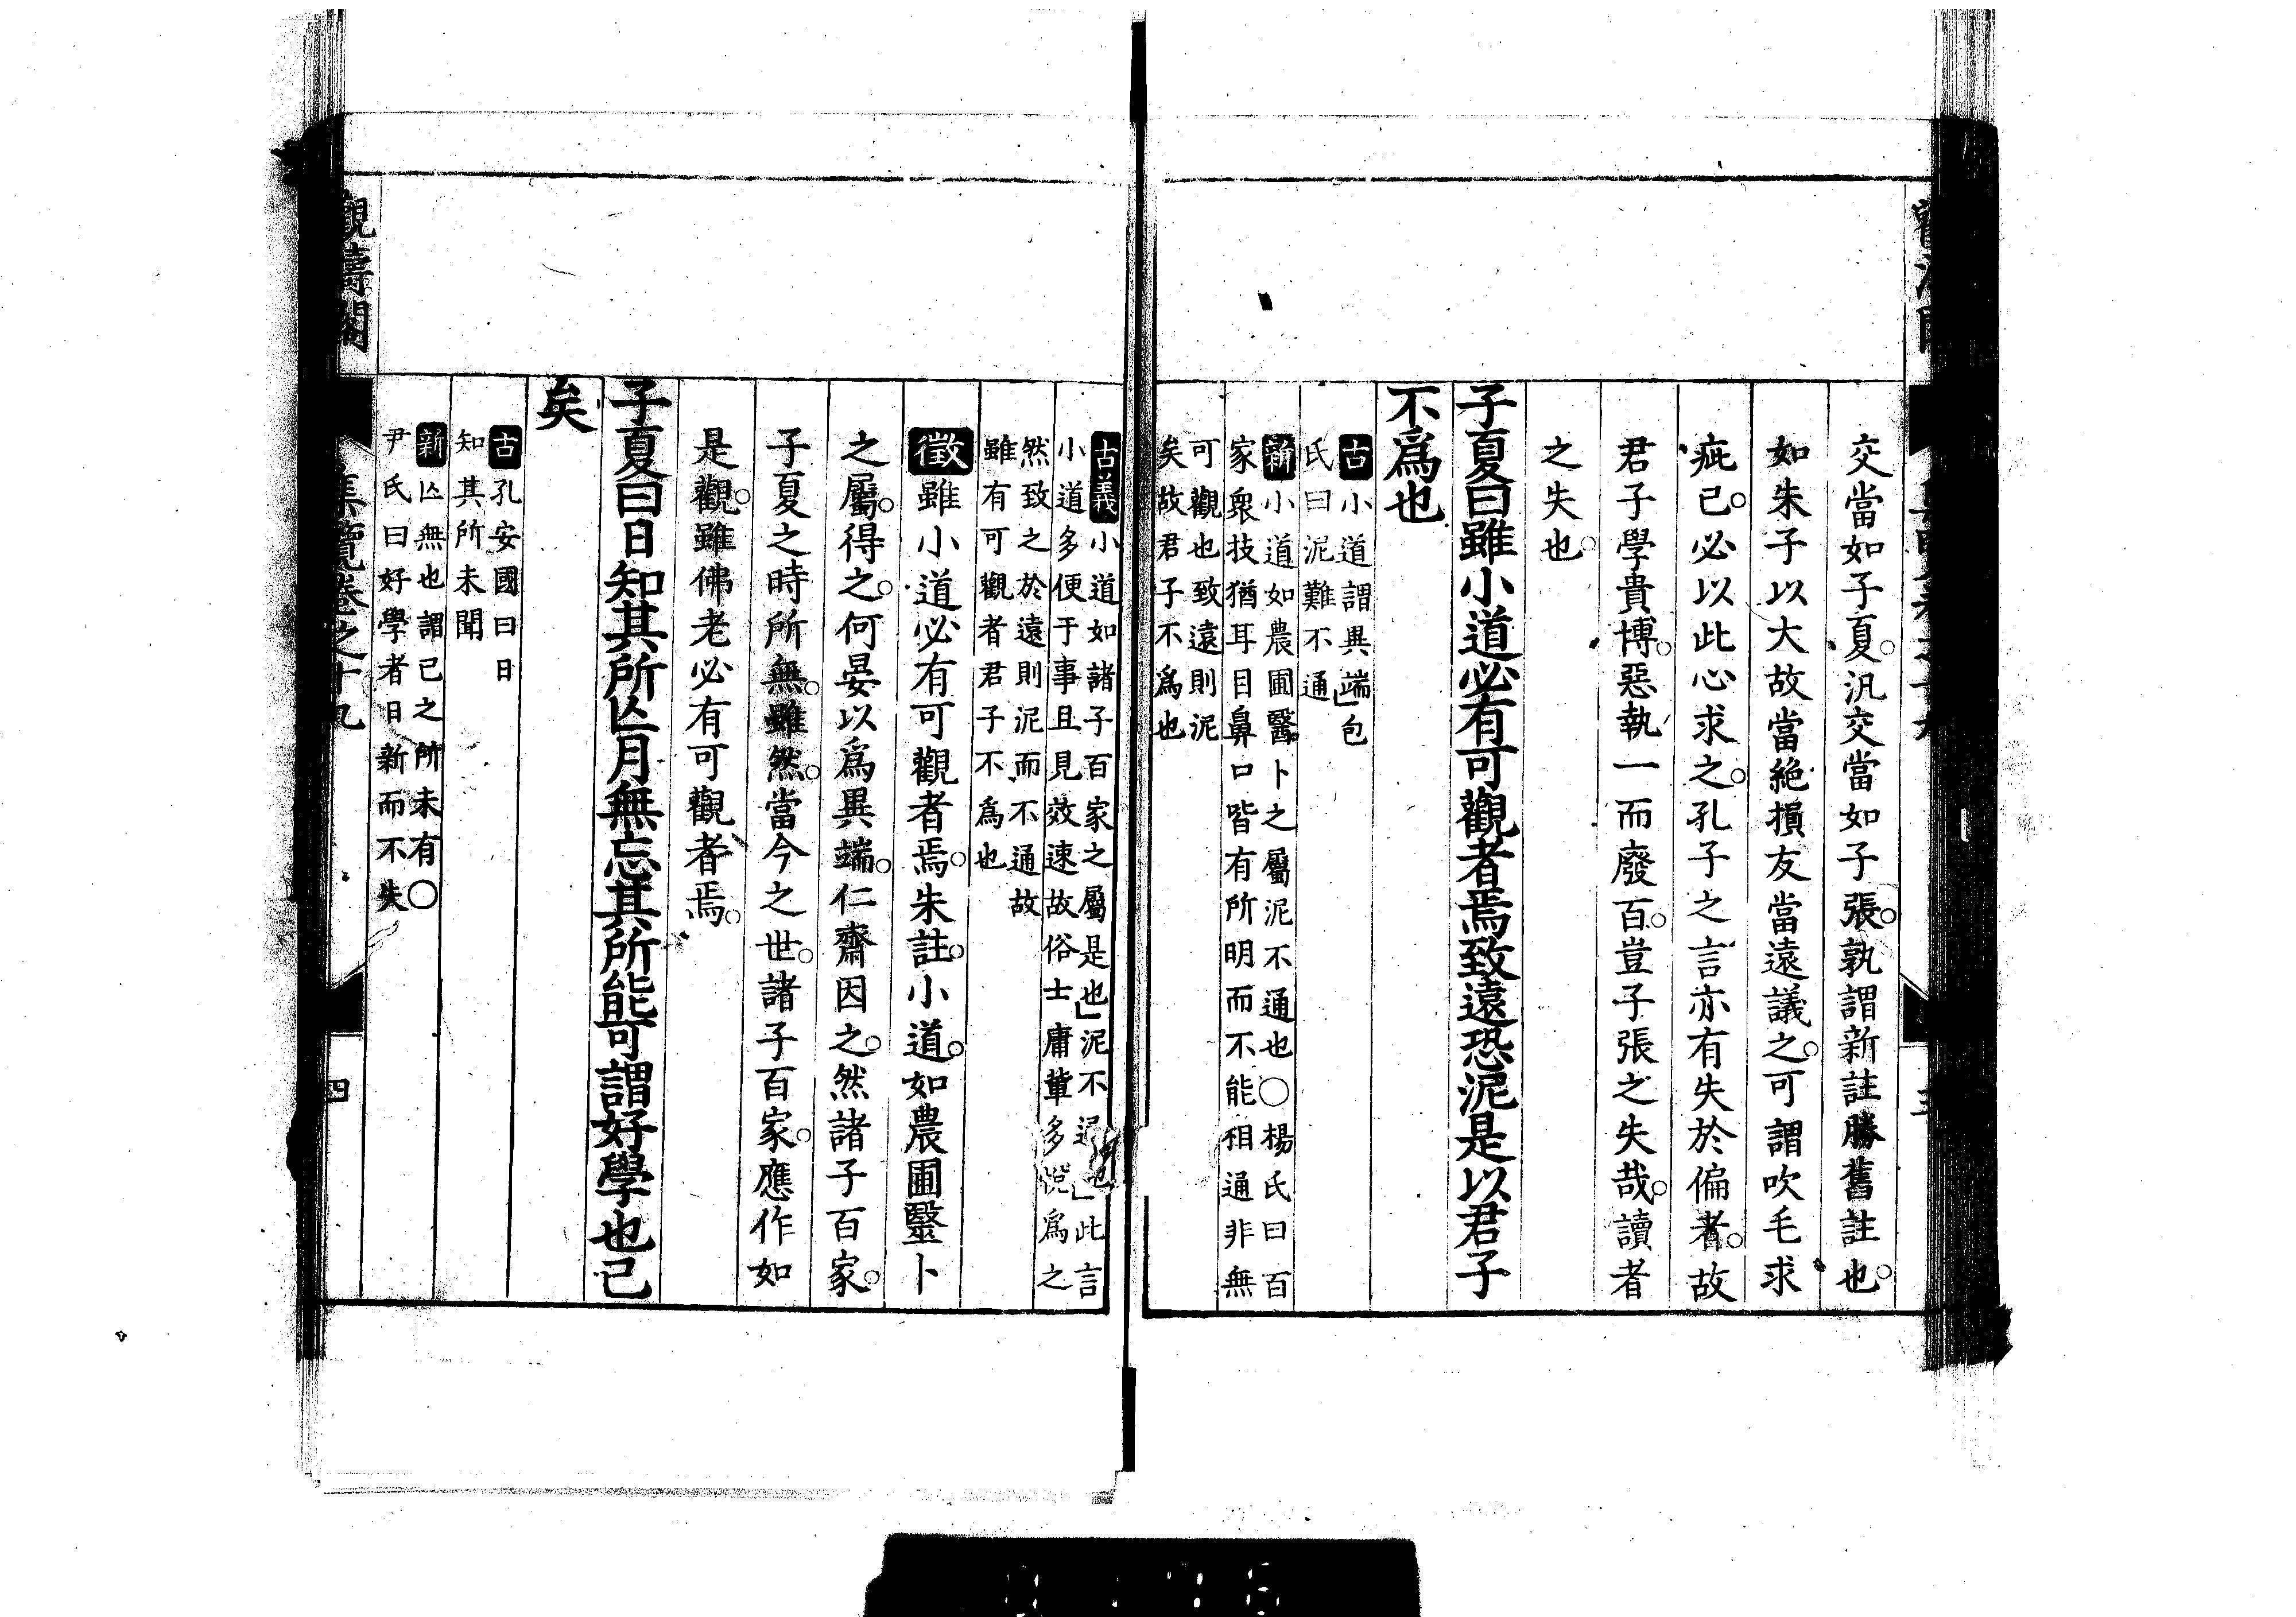 交當如子夏。汎交當如子張。孰謂新註勝舊註也。
如朱子以大故當絶損友當遠議之。可謂吹毛求
疵已。必以此心求之。孔子之言亦有失於偏者。故
君子學貴博。惡執一而廢百。豈子張之失哉。讀者
之失也。
子夏曰雖小道必有可觀者焉致遠恐泥是以君子
不爲也
古小道謂異端」包
氏曰泥難不通
新小道如農圃醫卜之屬泥不通也○楊氏曰百
家衆技猶耳目鼻口皆有所明而不能相通非無
可觀也致遠則泥
矣故君子不爲也
古義小道如諸子百家之屬是也」泥不通也」此言
小道多便于事且見效速故俗士庸輩多悅爲之
然致之於遠則泥而不通故
雖有可觀者君子不爲也
徵雖小道必有可觀者焉。朱註。小道。如農圃毉卜
之屬。得之。何晏以爲異端。仁齋因之。然諸子百家。
子夏之時所無。雖然。當今之世。諸子百家。應作如
是觀。雖佛老必有可觀者焉。
子夏曰日知其所亾月無忘其所能可謂好學也已
矣
古孔安國曰日
知其所未聞
新亾無也謂己之所未有○
尹氏曰好學者日新而不失
觀濤閣
集覽卷之十九
四